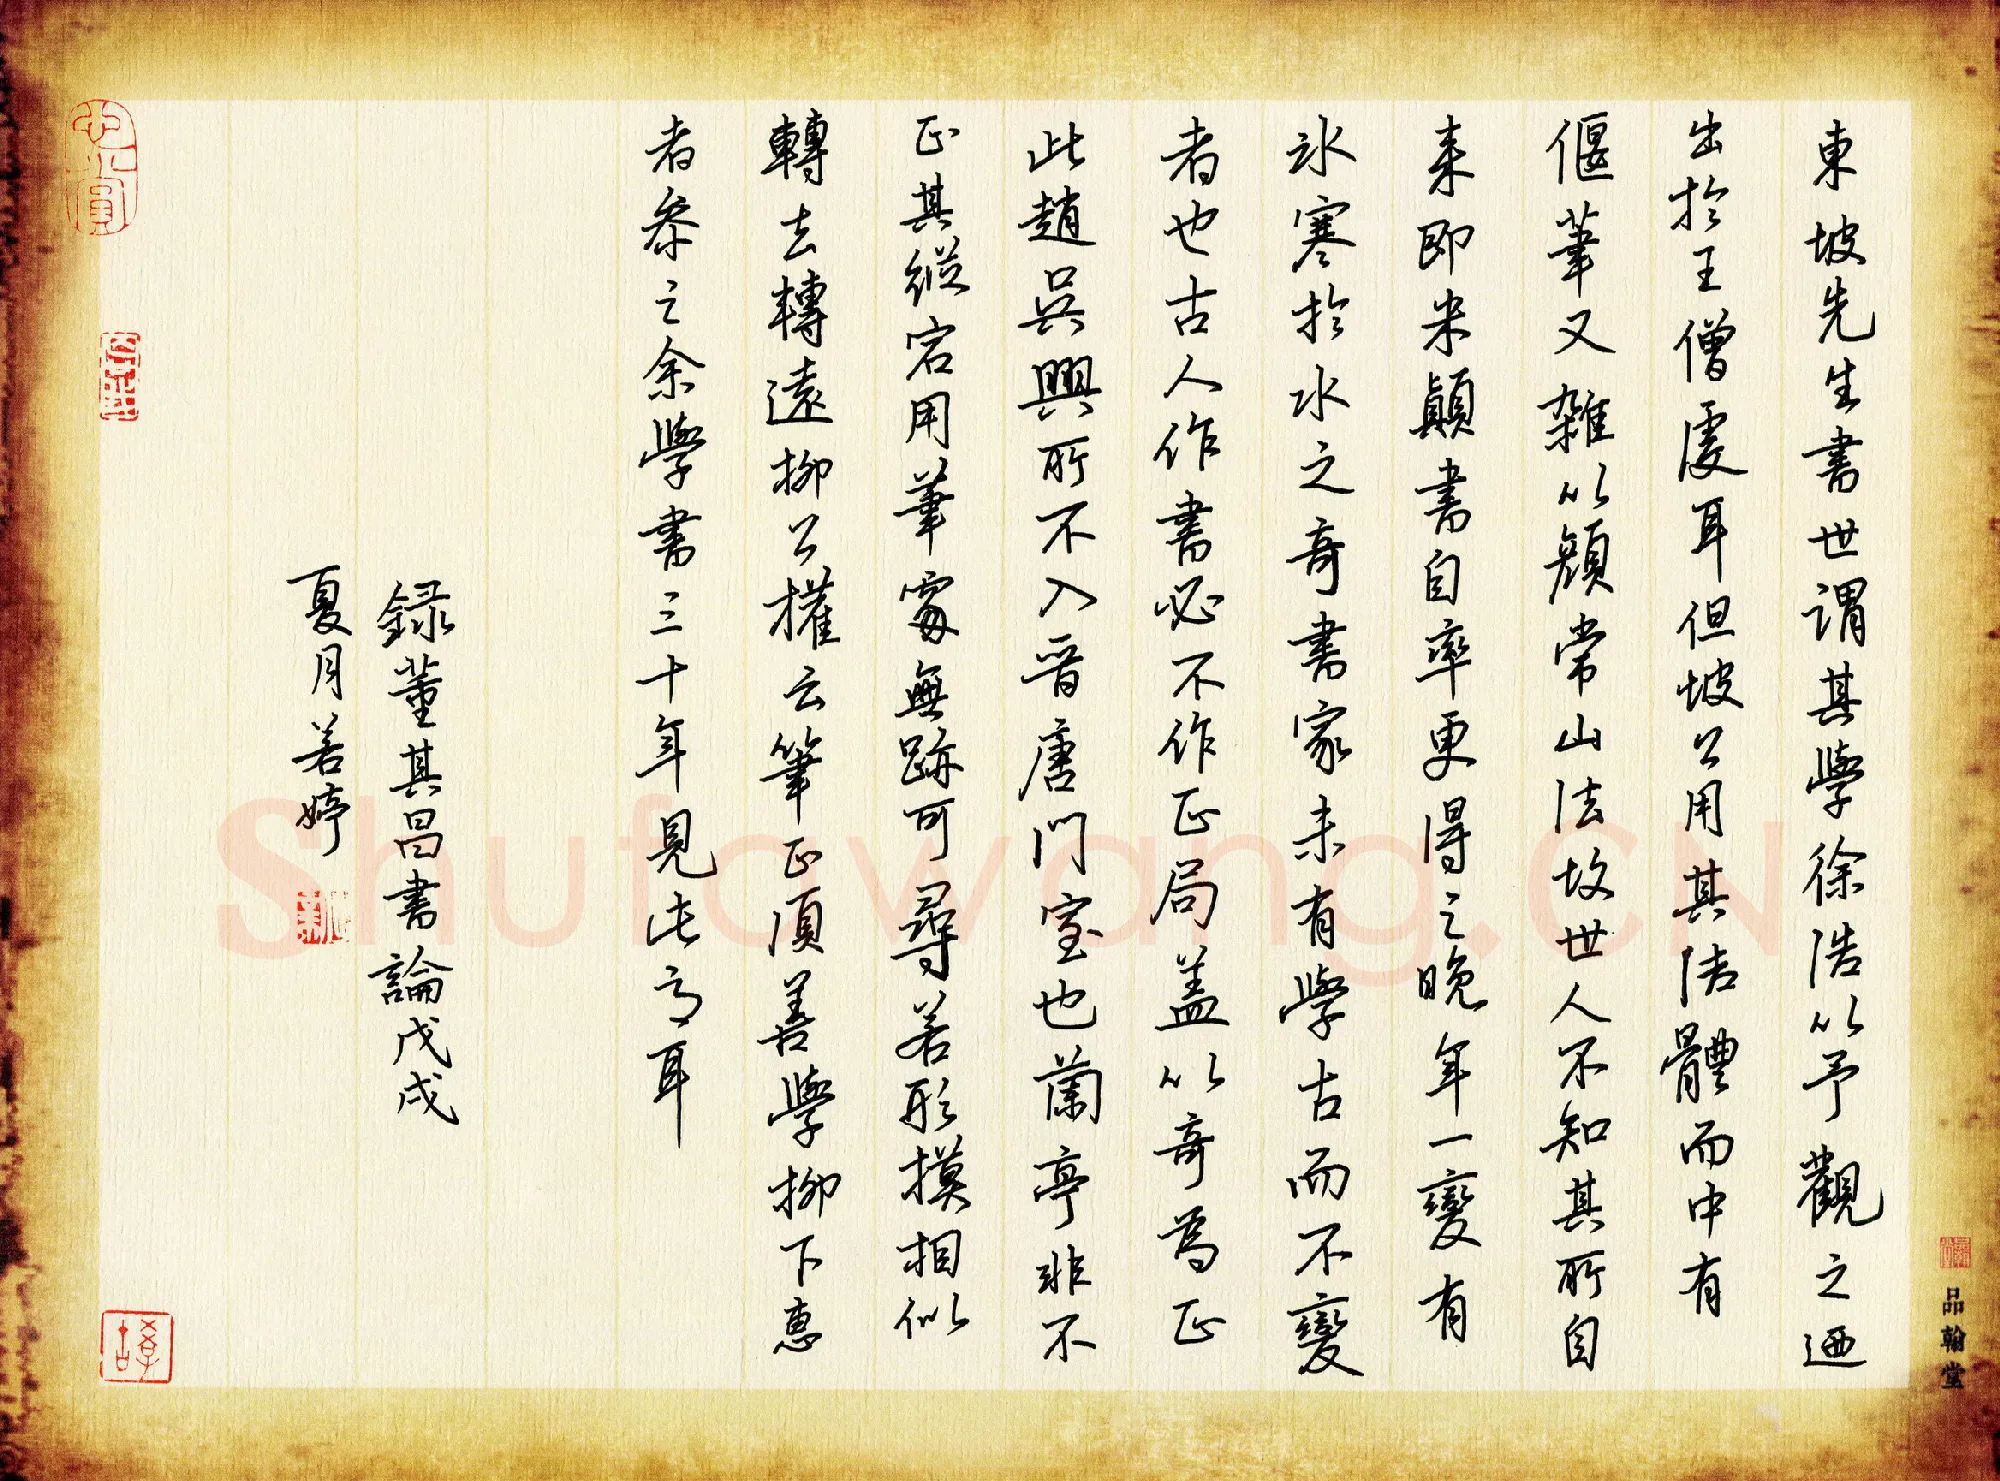 東坡先生書世謂其學徐浩以予觀之迺
出於王僧虔耳但坡公用其法體而中有
偃筆又雜以顏常山法故世人不知其所自
來即米顛書自率更得之晚年一變有
冰寒於水之奇書家未有學古而不變
者也古人作書必不作正局蓋以奇為正
此趙吳興所不入晉唐門室也蘭亭非不
正其縱宕用筆處無跡可尋若形摸相似
轉去轉遠柳公權云筆正須善學柳下惠
者參之余學書三十年見此意耳
録董其昌書論戊戌
夏月若婷
品翰堂
Shufawang.CN